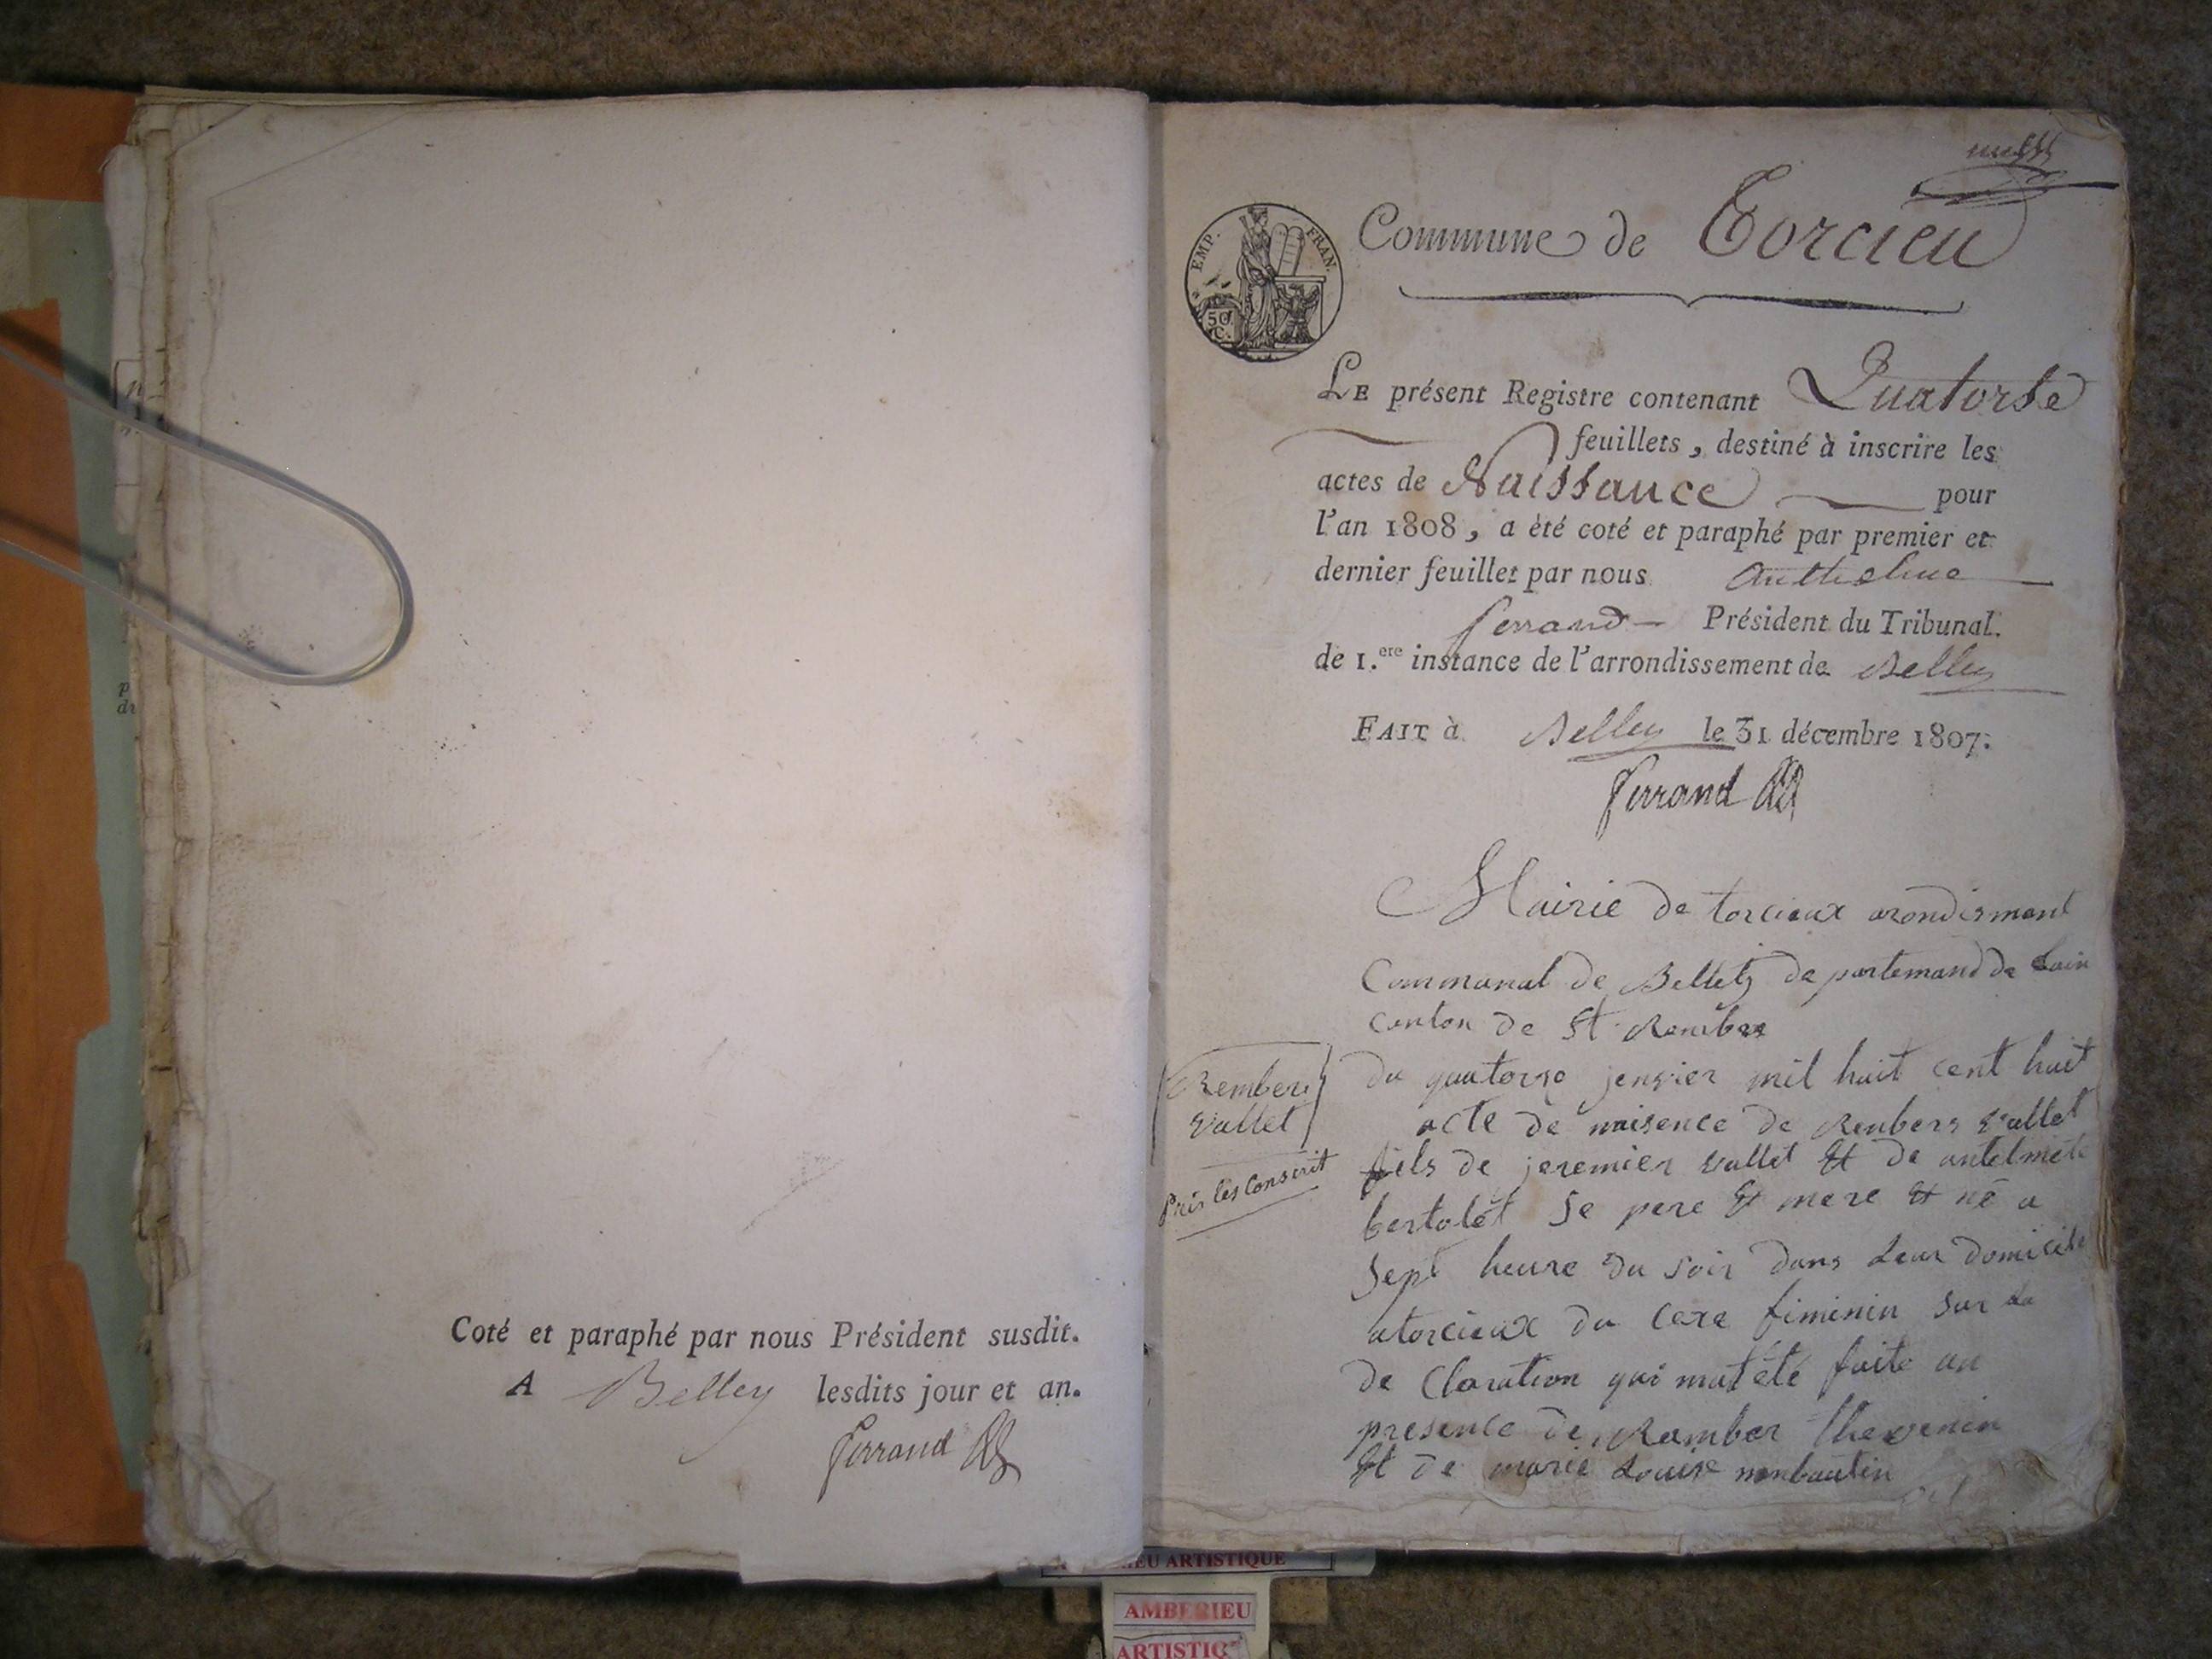 Coté et paraphé par nous Président susdit.
A Belley lesdits jour et an.
Ferrand
Commune de Torcieu
EMP. FRAN.
50
C.
LE présent Registre contenant Quatorse
feuillets, destiné à inscrire les
actes de Naissance pour
l'an 1808, a été coté et paraphé par premier et
dernier feuillet par nous Anthelme
ferrand Président du Tribunal.
de 1.ere instance de l'arrondissement de Belley
FAIT à Belley le 31 décembre 1807.
Ferrand
Mairie de torcieux arondisment
Communal de Belley de partemand de Lain
canton de St Rember
Rember
vallet
Pris les Conscrit
du quatorse jenvier mil huit cent huit
acte de naisence de Renbers vallet
fiels de jeremier vallet Et de antelmete
bertolet Se pere Et mere Et né a
Sept heure du soir dans Leur domicile
atorcieux du Cexe fiminin sur La
de Claration qui mat été faite an
presence de Ramber thevenin
Et de marie Louise monbautin
EU ARTISTIQUE
AMBERIEU
ARTISTIQ